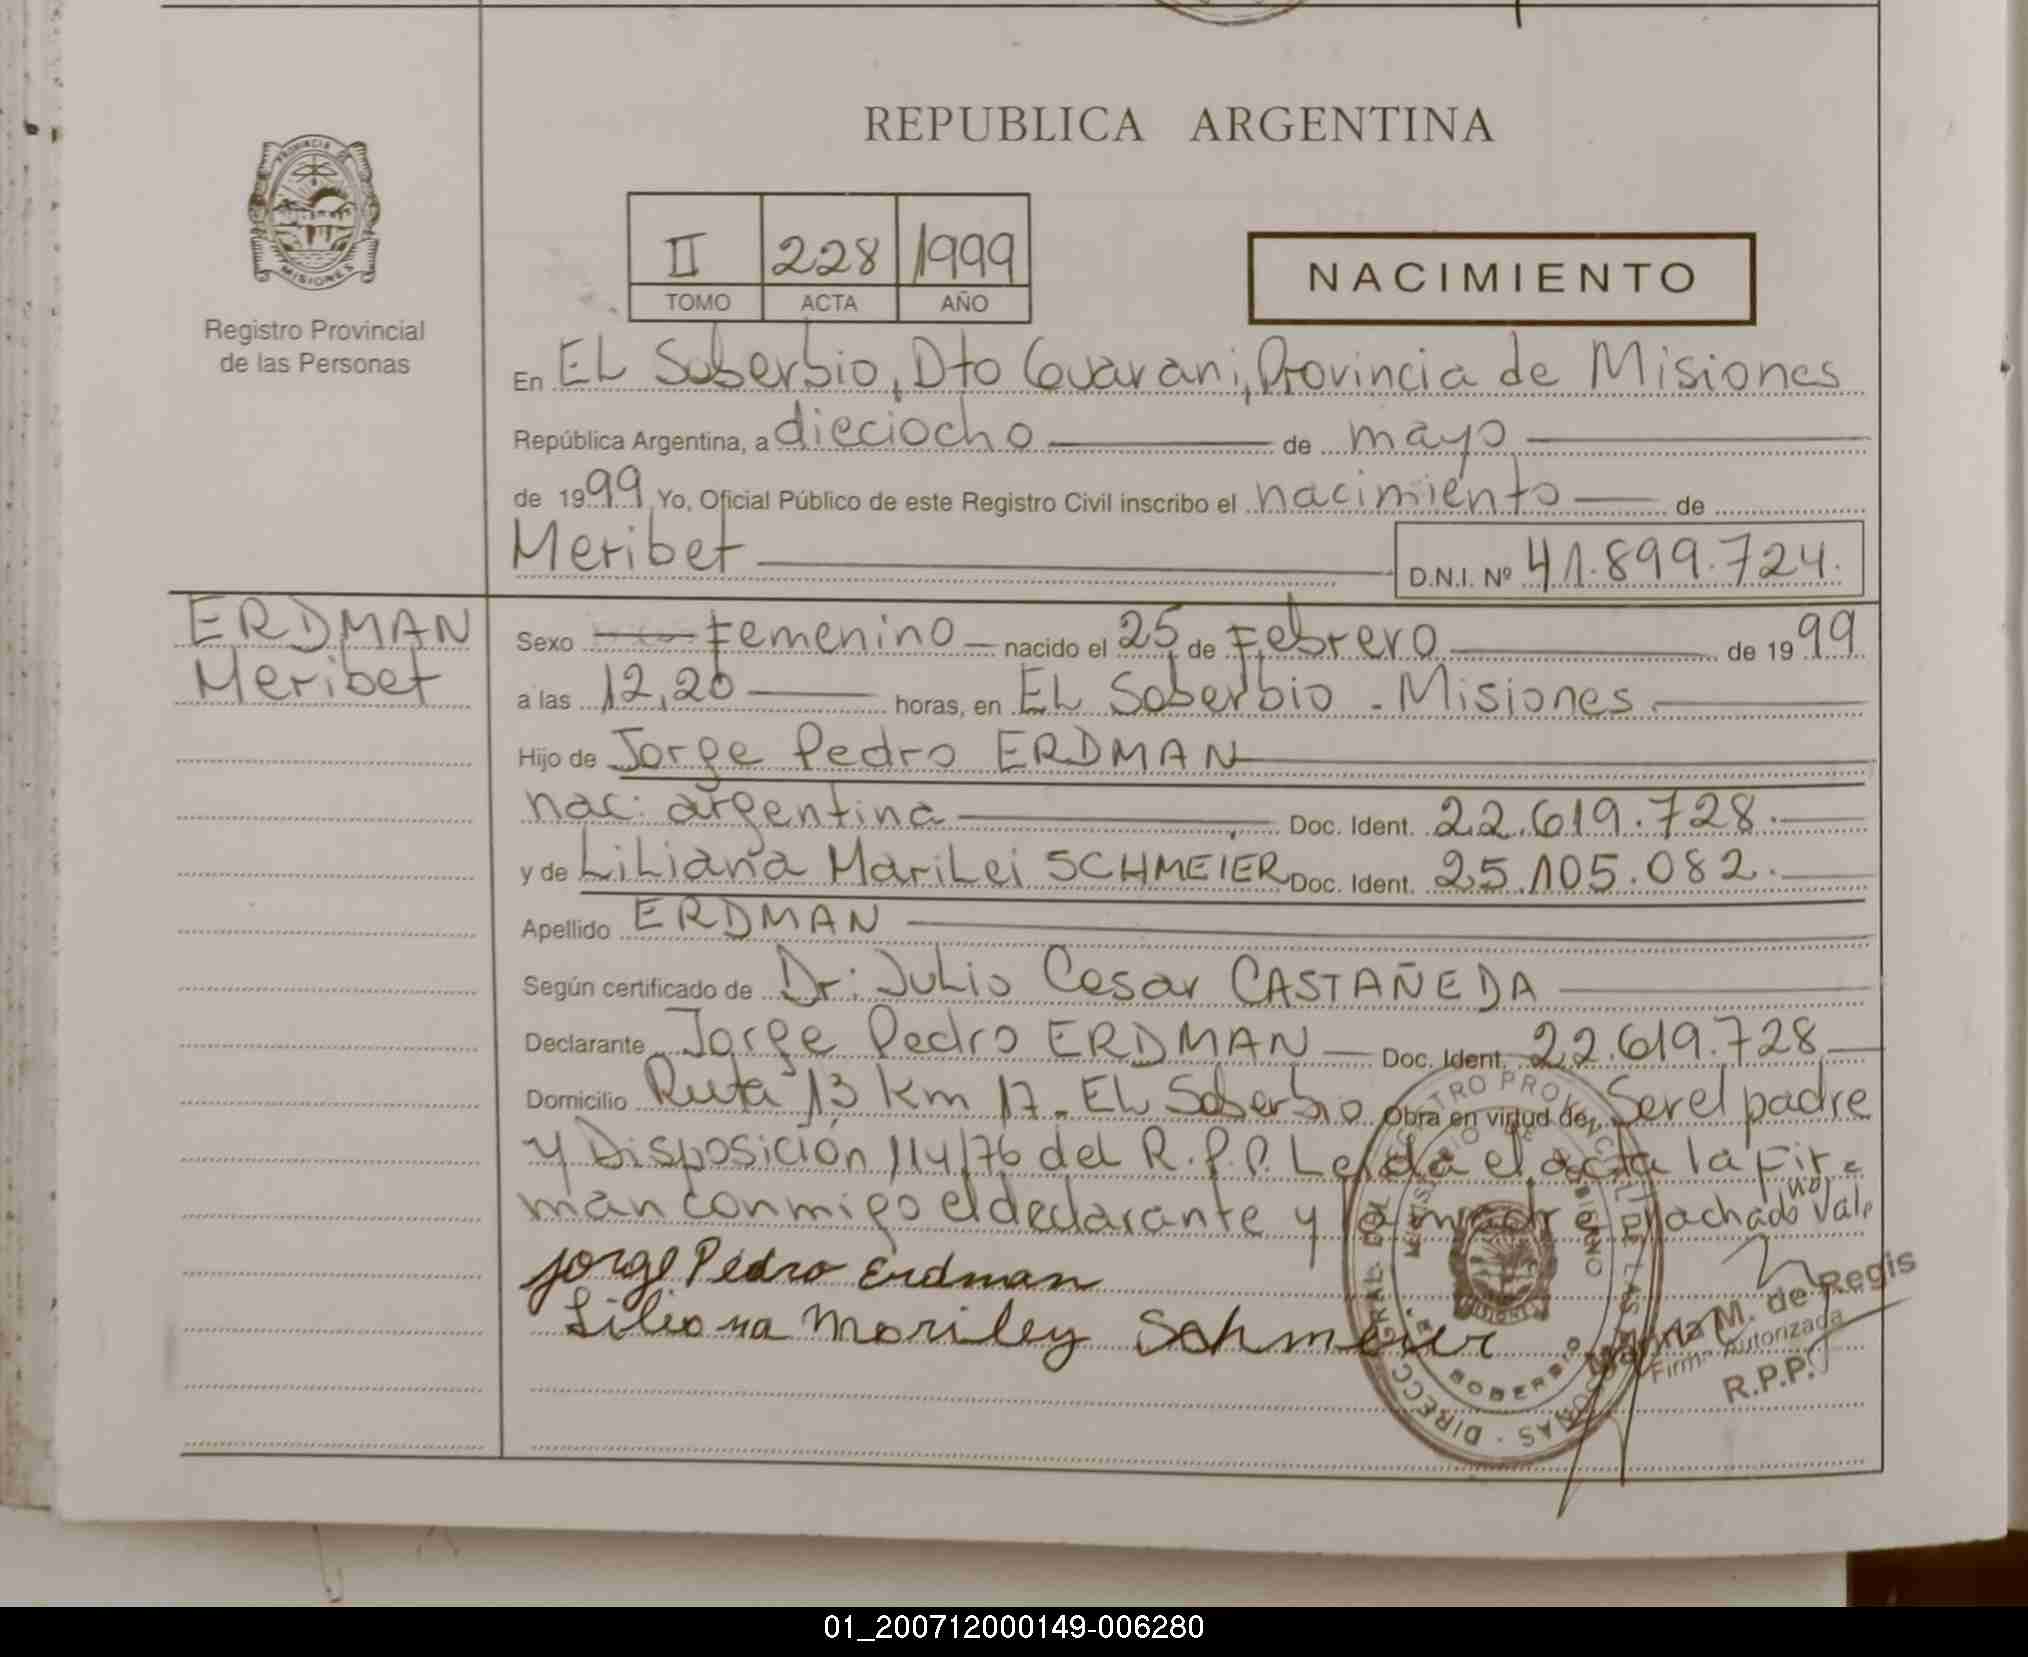 REPUBLICA ARGENTINA
PROVINCIA DE
MISIONES
Registro Provincial
de las Personas
II 228 1999
TOMO ACTA AÑO
NACIMIENTO
En EL Soberbio, Dto Guarani, Provincia de Misiones
República Argentina, a dieciocho de mayo
de 1999 Yo, Oficial Público de este Registro Civil inscribo el nacimiento de
Meribet D.N.I. Nº 41.899.724.
ERDMAN
Meribet
Sexo Femenino nacido el 25 de Febrero de 1999
a las 12,20 horas, en EL Soberbio - Misiones
Hijo de Jorge Pedro ERDMAN
nac: argentina Doc. Ident. 22.619.728.
y de LiLiana MariLei SCHMEIER Doc. Ident. 25.105.082.
Apellido ERDMAN
Según certificado de Dr: Julio Cesar CASTAÑEDA
Declarante Jorge Pedro ERDMAN Doc. Ident. 22.619.728
Domicilio Ruta 13 km 17 - EL Soberbio Obra en virtud de Ser el padre
y Disposición 114/76 del R.P.P. Leida el acta la fir-
man conmigo el declarante y la madre Machado no Vale
Jorge Pedro Erdman
Liliana Moriley Schmeier
M. de Regis
Firma Autorizada
R.P.P.
SOBERBIO
01_200712000149-006280